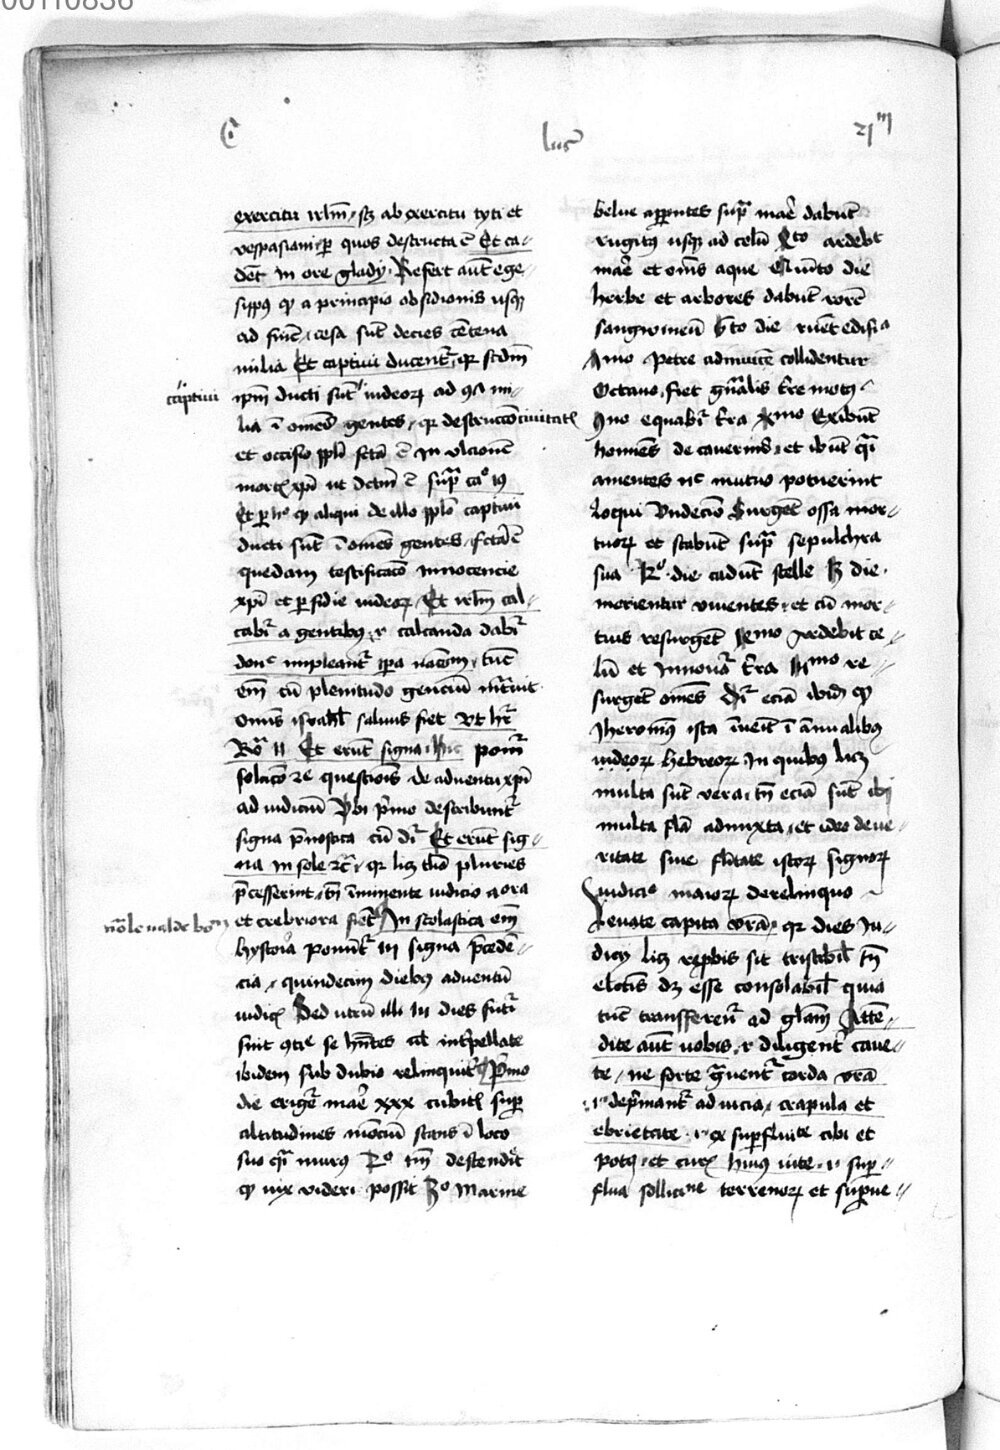 00110836
C
luc
21 m
exercitu irlm̄, sꝫ ab exercitu tyti et
vespasiani, ꝑ quos destructa ē Et ca-
dēt In ore gladij Refert aut̄ ege-
sippꝰ qꝫ a principio obsidionis usqꝫ
ad finē, cesa sūt decies cētena
milia Et captiui ducent᷑, qꝛ scdm̄
captiui
ipm̄ ducti sūt iudeoꝝ ad
lia ī omēs gentes, qꝛ destructio ciuitatꝭ
et occisio ppl̄i fctā ē In vlcionē
mortꝭ xp̄i ut dctm̄ ē sup̄ᵃ caº 19
Et ꝑ hᵒ qꝫ aliqui de illo pplō captiui
ducti sūt ī omēs gentes, fctā ē
quedam testificacō Innocencie
xp̄i et ꝑfidie iudeoꝝ, Et irlm̄ cal-
cabit᷑ a gentibꝰ, calcanda dabit᷑
donᶜ impleant᷑ tꝑa nacōm, tūc
em̄ cū plenitudo genciū intᷓuit
omnis israhel saluus fiet Vt hr̄
Roᵃ 11 Et erūt signa, hic pom̄
solucō 2e questiōis de aduentu xp̄i
ad iudiciū Vbi pͥmo describunt᷑
signa p̄nostica cū dr̄ Et erūt sig-
na In sole ⁊c̄, qꝛ licꝫ pluries
p̄cesserint, tn̄ īminente iudicio
nōle valde bonū
et crebriora fient In scolastica em̄
hystoria ponunt᷑ signa p̄cedē-
cia, quindecim diebꝰ aduentū
iudicꝭ Sed utrū illi dies fut᷑i
sint se Int̄pellate
ibidem sub dubio relinquit᷑ pͥmo
die eriget᷑ mare xxx cubitꝭ supᷓ
altitudines mōciū stans ī loco
suo qᷓi murꝰ 2º descendit
qꝫ vix videri possit 3º Marine
belue apparentes supᷓ mare dabūt
rugitꝰ usqꝫ ad celū 4to ardebit
mare et om̄s aque Quīto die
herbe et arbores dabūt rorē
sanguineū 6to die ruēt edificia
7mo Petre adinuicē collidentur
Octauo, fiet gn̄alis tr̄e motꝰ
9no equabit᷑ tr̄a Xmo Exibūt
homīes de cauernis, et ibūt qᷓi
amentes nᶜ mutuo potuerint
Loqui Vndecīo Surgēt ossa mor-
tuoꝝ et stabūt supᷓ sepulchra
sua 12º die cadūt stelle 13 die
morientur viuentes, et cū mor-
tuis resurgēt 14mo Ardebit ce-
lū et Innouat᷑ tr̄a 15mo re-
surgēt omēs Dr̄ eciā ibidē qꝫ
Iheronimꝰ ista inuēit ī annalibꝰ
iudeoꝝ hebreoꝝ, In quibꝰ licꝫ
multa sūt vera, tn̄ eciā sūt ibi
multa flā admixta, et ideo de ve-
ritate siue fl̄itate istoꝝ signoꝝ
iudicio maioꝝ derelinquo
Leuate capita vr̄a, qꝛ dies Iu-
dicij licꝫ rep̄bis sit tristibil̄ tn̄
elctīs dꝫ esse consolabil̄ quia
tūc transferent᷑ ad gl̄am Atte-
dite aut̄ uobis, diligent᷑ caue-
te, ne forte gᷓuent᷑ corda vr̄a
.i. dep̄mant᷑ ad vicia, crapula et
ebrietate .i. ex supfluitate cibi et
potꝰ, et curꝭ huius vite .i. supᷓ-
flua sollicitūe terrenoꝝ et supᷓue-